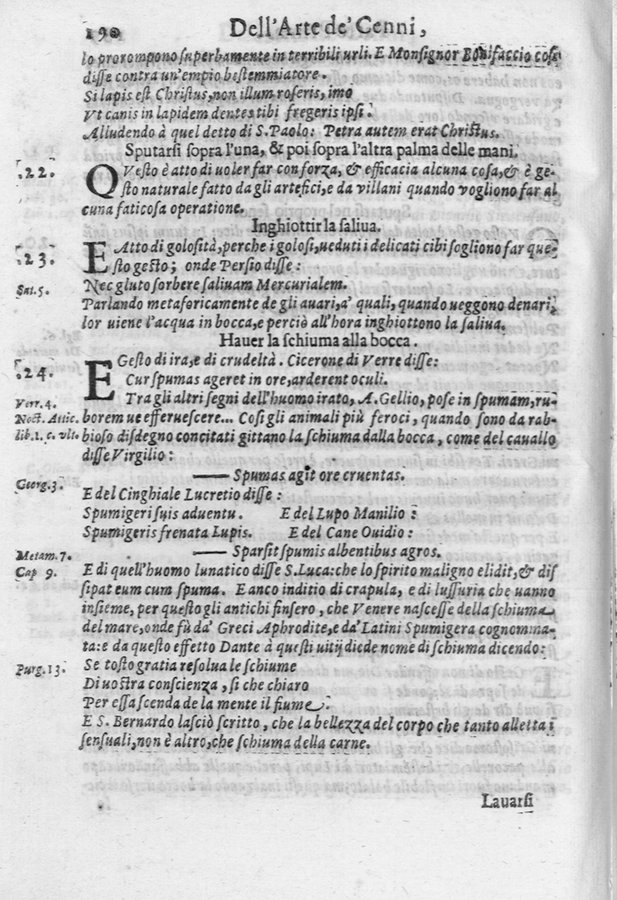 190 Dell'Arte de' Cenni,
lo prorompono superbamente in terribili urli. E Monsignor Bonifaccio cosi
disse contra un'empio bestemmiatore.
Si lapis est Christus, non illum roseris, imo
Vt canis in lapidem dentes tibi fregeris ipsi.
Alludendo à quel detto di S. Paolo: Petra autem erat Christus.
Sputarsi sopra l'una, & poi sopra l'altra palma delle mani.
.22. QVesto è atto di voler far con forza, & efficacia alcuna cosa, & è ge-
sto naturale fatto da gli artefici, e da villani quando vogliono far al
cuna faticosa operatione.
Inghiottir la saliua.
.23. E Atto di golosità, perche i golosi, ueduti i delicati cibi sogliono far que-
sto gesto; onde Persio disse:
Sat. 5. Nec gluto sorbere saliuam Mercurialem.
Parlando metaforicamente de gli auari, a' quali, quando ueggono denari,
lor uiene l'acqua in bocca, e perciò all'hora inghiottono la saliua.
Hauer la schiuma alla bocca.
.24. E Gesto di ira, e di crudeltà. Cicerone di Verre disse:
Verr. 4. Cur spumas ageret in ore, arderent oculi.
Tra gli altri segni dell'huomo irato, A. Gellio, pose in spumam, ru-
Noct. Attic. borem ue efferuescere... Cosi gli animali più feroci, quando sono da rab-
lib. 1. c. vlt. bioso disdegno concitati gittano la schiuma dalla bocca, come del cauallo
disse Virgilio:
Georg. 3. —— Spumas agit ore cruentas.
E del Cinghiale Lucretio disse:
Spumigeri suis aduentu. E del Lupo Manilio:
Spumigeris frenata Lupis. E del Cane Ouidio:
Metam. 7. —— Sparsit spumis albentibus agros.
Cap 9. E di quell'huomo lunatico disse S. Luca: che lo spirito maligno elidit, & dis
sipat eum cum spuma. E anco inditio di crapula, e di lussuria che uanno
insieme, per questo gli antichi finsero, che Venere nascesse della schiuma
del mare, onde fù da' Greci Aphrodite, e da' Latini Spumigera cognomma-
ta: e da questo effetto Dante à questi uitij diede nome di schiuma dicendo:
Purg. 13. Se tosto gratia resolua le schiume
Di uostra conscienza, si che chiaro
Per essa scenda de la mente il fiume.
E S. Bernardo lasciò scritto, che la bellezza del corpo che tanto alletta i
sensuali, non è altro, che schiuma della carne.
Lauarsi